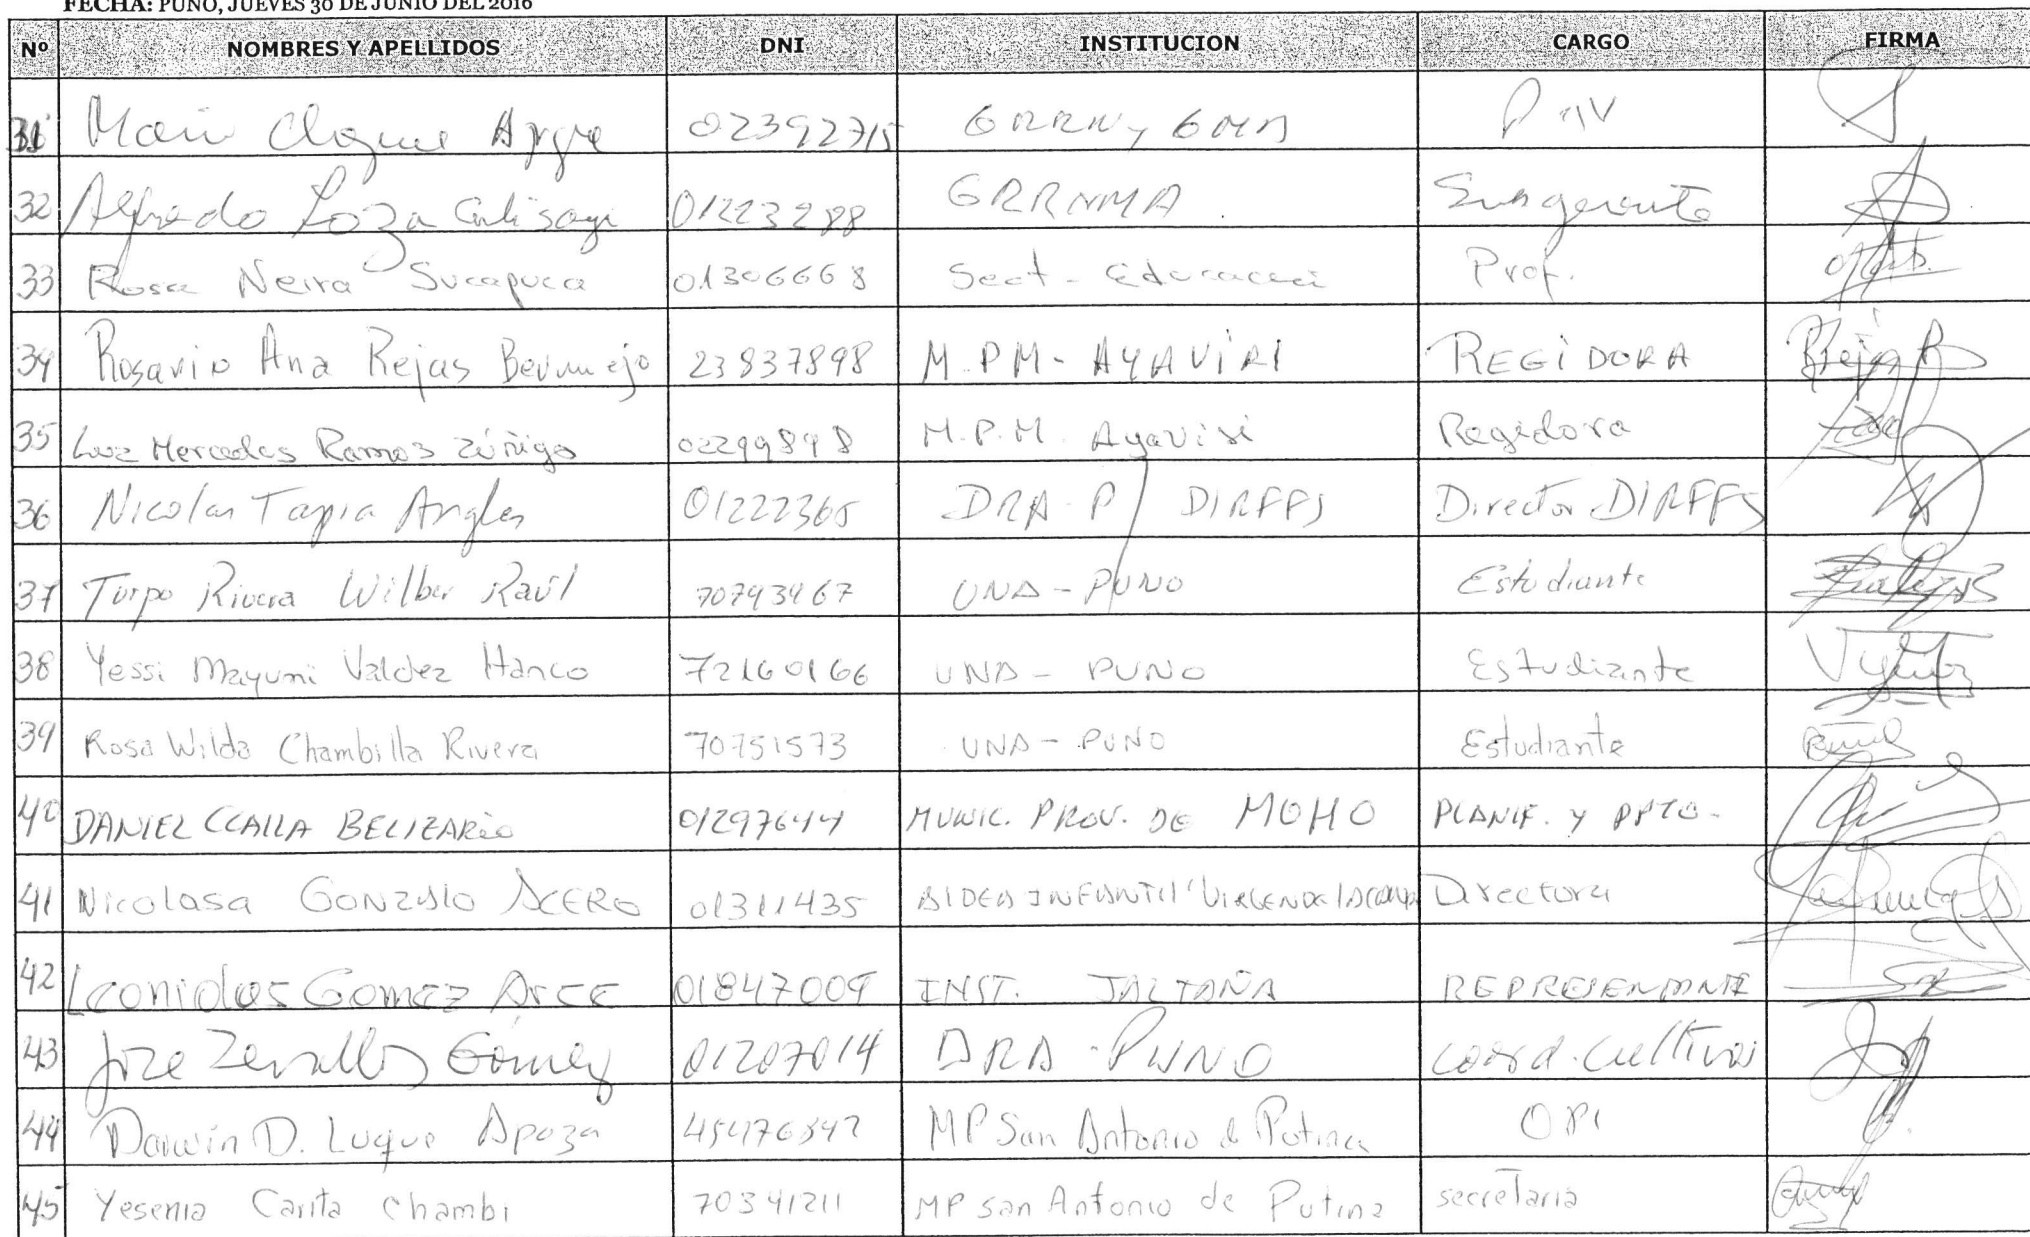 FECHA: PUNO, JUEVES 30 DE JUNIO DEL 2016
Nº NOMBRES Y APELLIDOS DNI INSTITUCION CARGO FIRMA
31 02392715 GRRN y GMA
32 Alfredo Loza 01223288 GRRNMA Subgerente
33 Rosa Neira Sucapuca 01306668 Sect - Prof.
34 Rosario Ana Rejas Bermejo 23837898 M.PM- AYAVIRI REGIDORA
35 Luz Mercedes Ramos Zúñiga 02299898 M.P.M. Ayaviri Regidora
36 Nicolas Tapia Angles 01222365 DRA-P / DIRFFS Director DIRFFS
37 Turpo Rivera Wilber Raúl 70793967 UNA - PUNO Estudiante
38 Yessi Mayumi Valdez Hanco 72160166 UNA - PUNO Estudiante
39 Rosa Wilda Chambilla Rivera 70751573 UNA - PUNO Estudiante
40 DANIEL CCALLA BELIZARIO 01297644 MUNIC. PROV. DE MOHO PLANIF. Y PPTO.
41 Nicolasa GONZALO ACERO 01311435 ALDEA INFANTIL Directora
42 Leonidas Gomez Arce 01847009 INST. REPRESENTANTE
43 Jose Zevallos Gómez 01207014 DRA - PUNO Coord. Cultivos
44 Darwin D. Luque Apaza MP San Antonio de Putina OPI
45 Yesenia Carita Chambi 70341211 MP san Antonio de Putina secretaria